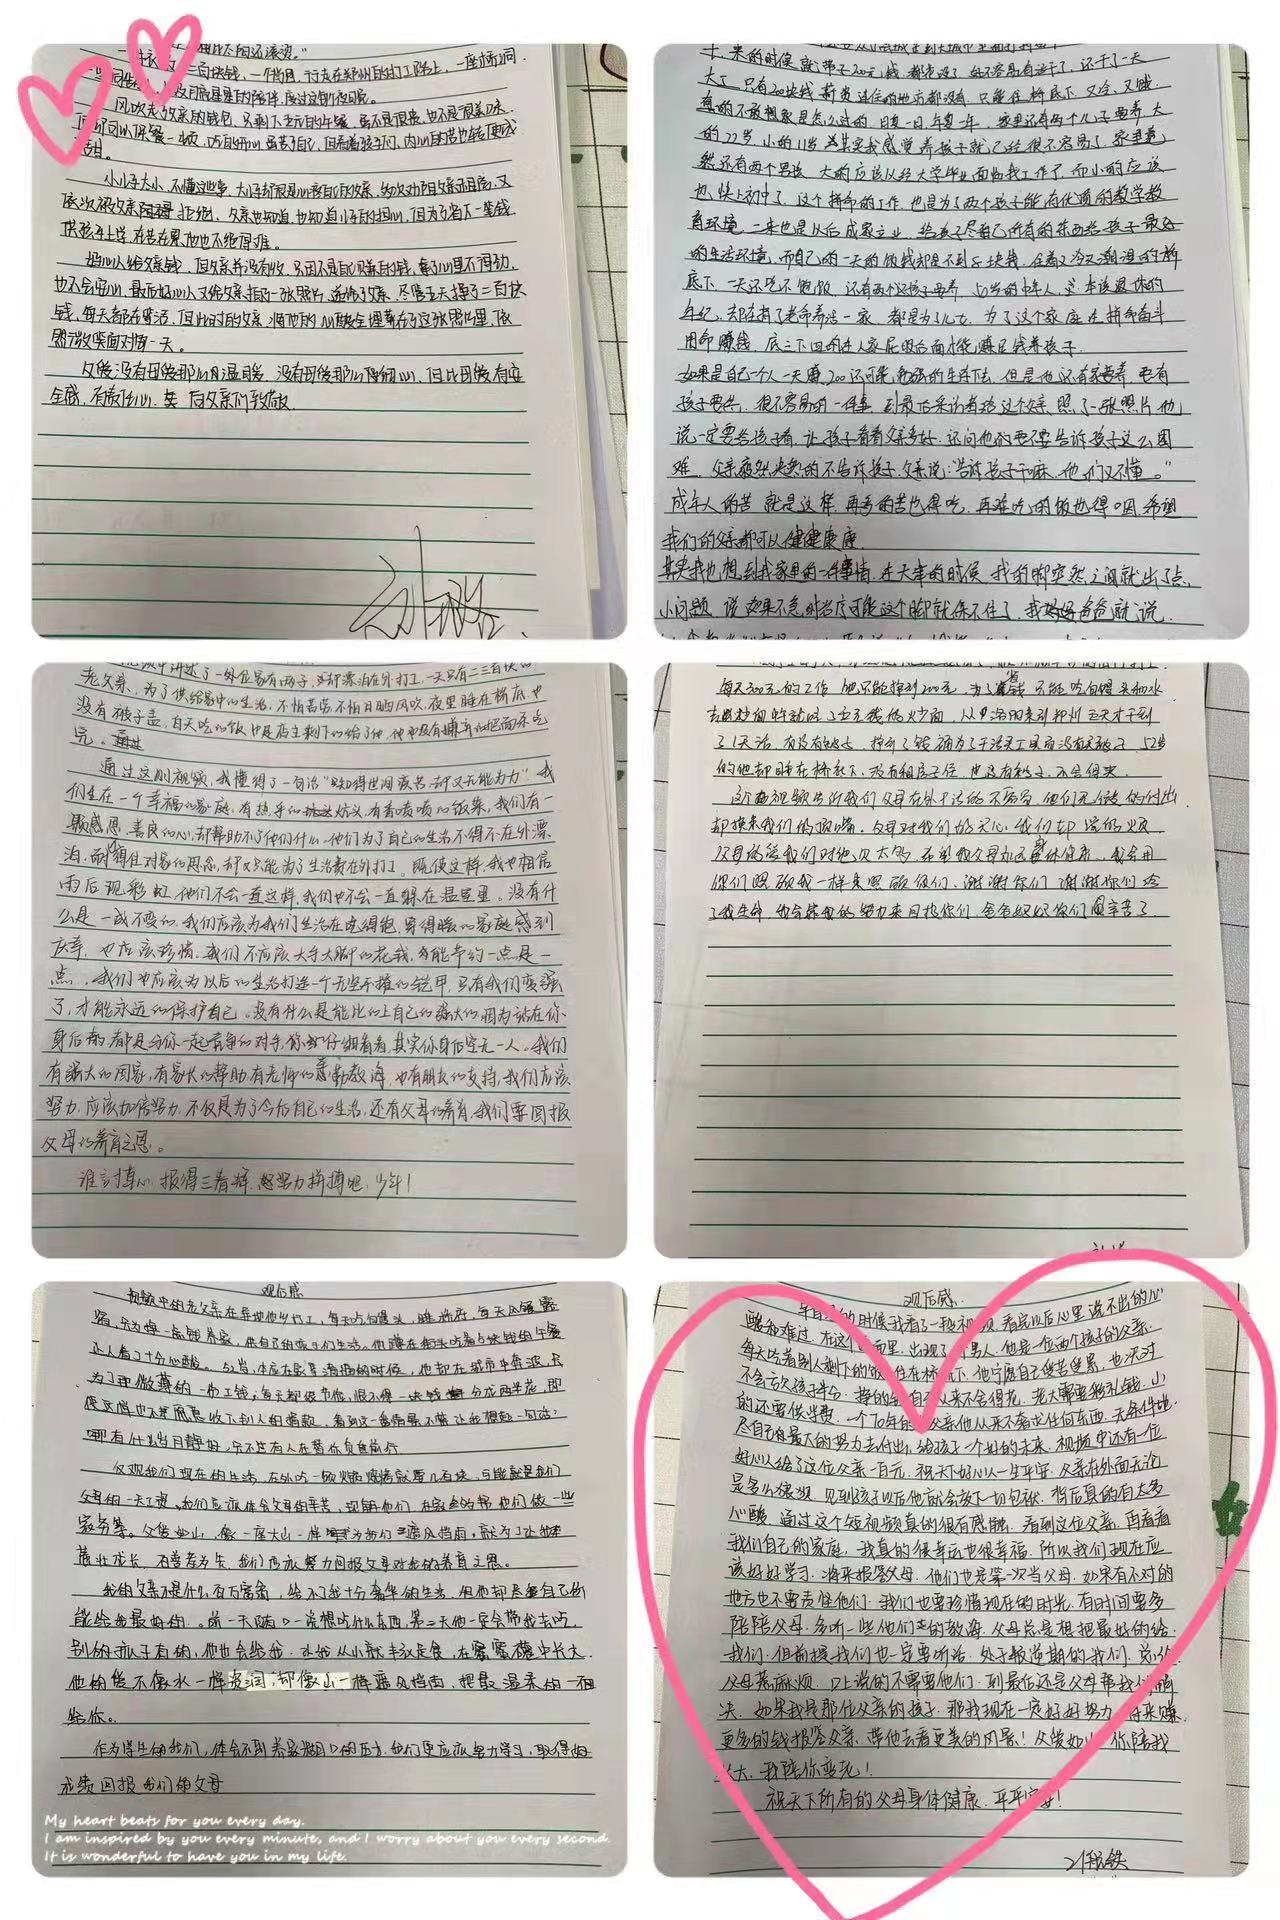 一件衣
二百块钱，一个背包，行走在郑州的打工路上，一座桥洞
风吹走父亲的钱包，只剩下五元的午餐，虽不是很贵，也不是很美味，
但却可以保餐一顿，
小儿子太小，不懂这些事，大儿子却很是心疼自己的父亲，多次劝阻父亲别干，又
依次被父亲阻碍拒绝，父亲也知道，也知道儿子的担心，但为了省下一笔钱，
供孩子上学，再苦在累他也不觉得难。
好心人给父亲钱，但父亲并没有收，只因不是自己赚的钱，拿了心里不得劲，
也不会安心，最后好心人又给父亲拍了一张照片，送给了父亲，尽管五天挣了二百块
钱，每天都在奔活，但此时的父亲，将他的心酸全埋葬在了这张照片里，依
照微笑面对每一天。
父爱没有母爱那么的温暖，没有母爱那么的细心，但比母爱有安
全感，有责任心，其后父亲们致敬。
来的时候就带了200元钱，都丢没了，好不容易有活干了，还干了一天
大工，只有200块钱薪资，连住的地方都没有，只能住桥底下，又冷，又饿，
真的不敢想象是怎么过的，日复一日，年复一年，家里还有两个儿子要养，大
的22岁，小的11岁，其实我感觉养孩子就已经很不容易了，家里竟
然还有两个男孩，大的应该从经大学毕业面临找工作了，而小的应该
也快上初中了，这个拼命的工作，也是为了两个孩子能有优质的教学教
育环境，二来也是以后成家立业，给孩子尽自己所有的东西给孩子最好
的生活环境，而自己的一天的饭钱都是不到5块钱，住着又冷又潮湿的桥
底下，一天还吃不饱饭，还有两个孩子要养，52岁的中年人，本该退休的
年纪，却在拼了老命养活一家，都是为了儿女，为了这个家庭在拼命奋斗
用命赚钱，底三下四的在人家屁股后面才能赚足钱养孩子。
如果是自己一个人一天赚200还可能，勉强的生活下去，但是他还有家要养，要有
孩子要供，很不容易的一件事，到最后采访者给这个父亲，照了一张照片他
说一定要给孩子看，让孩子看看父亲多好，还问他的要不要告诉孩子这么困
难，父亲毅然决然的不告诉孩子，父亲说：“告诉孩子干嘛，他们又不懂。”
成年人的苦就是这样，再多的苦也得吃，再难吃的饭也得咽，希望
我们的父亲都可以健健康康
其实我也想到我家里的一件事情，在大年的时候，我的脚突然之间就出了点，
小问题，说如果不急时治疗可能这个脚就保不住了，我爸爸就说，
视频中讲述了一外在家有两子，父却漂泊在外打工，一天只有二三百块的
老父亲，为了供给家中的生活，不怕苦劳不怕日晒风吹，夜里睡在桥底，也
没有被子盖，白天吃的饭也是店主剩下的给了他，他也没有嫌弃的把面条吃
完。
通过这则视频，我懂得了一句话“知得世间疾苦，却又无能为力”我
们生在一个幸福的家庭，有热乎的炕头，有香喷喷的饭菜，我们有一
颗感恩，善良的心，却帮助不了他们什么，他们为了自己的生活不得不在外漂
泊，耐得住对家的思念，却又只能为了生活费在外打工。既使这样，我也相信
雨后现彩虹，他们不会一直这样，我们也不会一直躲在温室里。没有什
么是一成不变的，我们应该为我们生活在吃得饱，穿得暖的家庭感到
庆幸，也应该珍惜，我们不应该大手大脚的花钱，多能节约一点是一
点，我们也应该为以后的生活打造一个无坚不摧的铠甲，只有我们变强
了，才能永远的保护自己。没有什么是能比的上自己的强大的，因为站在你
身后的，都是与你一起竞争的对手，你仔细看看，其实你身后空无一人。我们
有强大的国家，有家长的帮助有老师的辛勤教诲，也有朋友的支持，我们应该
努力，应该加倍努力，不仅是为了今后自己的生活，还有父母的养育，我们要回报
父母的养育之恩。
谁言寸草心，报得三春辉，努力拼搏吧，少年！
每天300元的工作，他只能挣到200元，为了省钱，只能吃白馒头和水
去炒面时就吃了五元钱的炒面，从洛阳来到郑州五天才干到
了1天活，52岁
的他却睡在桥底下，没有租房子住，也没有被子，不舍得买。
这个视频告诉我们父母在外干活的不容易，他们无私的付出
却换来我们的顶嘴，父母对我们的关心，我们却
你们照顾我一样来照顾你们，谢谢你们，谢谢你们给
了我生命，我会我的努力来回报你们，爸爸妈妈你们辛苦了
观后感
视频中的老父亲在异地他乡打工，每天吃馒头，睡桥府，每天风餐露
宿，只为挣一点钱养家，供自己的孩子们生活，他蹲在街头吃着5块钱的午餐
让人看了十分心酸。52岁，本应在家享清福的时候，他却在城市中奔波，只
为了那微薄的一份工钱，每天都很节俭，恨不得一块钱分成两半花，即
使这样也不愿意收下别人的捐款，看到这一番情景不禁让我想起一句话：
哪有什么岁月静好，只不过有人在替你负重前行
反观我们现在的生活，在外吃一顿火锅烧烤就要几百块，可能就是我们
父母的一天工资，我们应该体会父母的辛苦，理解他们，在家多给帮他们做一些
家务等。父爱如山，像一座大山一样为我们遮风挡雨，只为了让我们
茁壮成长，百善孝为先，我们应该努力回报父母对我的养育之恩。
我的父亲不是什么百万富翁，给不了我十分奢华的生活，但他却尽量自己所
能给我最好的。前一天随口一说想吃什么东西，第二天他一定会带我去吃，
别的孩子有的，他也会给我，让我从小就丰衣足食，在蜜罐中长大，
他的爱不像水一样滋润，却像山一样遮风挡雨，把最温柔的一面
给你。
作为学生的我们，体会不到养家糊口的压力，我们更应该努力学习，取得好
成绩回报我们的父母
My heart beats for you every day.
I am inspired by you every minute, and I worry about you every second.
It is wonderful to have you in my life.
观后感
的时候我看了一段视频，看完以后心里说不出的心
酸和难过，在这个画面里，出现了男人，他是一位两个孩子的父亲，
每天吃着别人剩下的饭，住在桥底下，他宁愿自己受苦受累，也决对
不会亏欠孩子半分，挣的钱自己从来不舍得花，老大需要彩礼钱，小
的还要供学费，一个70年的父亲他从来不奢求任何东西，无条件地
尽自己最大的努力去付出，给孩子一个好的未来，视频中还有一位
好心人给了这位父亲一百元，祝天下好心人一生平安，父亲在外面无论
是多么狼狈，见到孩子以后他就会放下一切包袱，背后真的有太多
心酸，通过这个短视频真的很有感触，看到这位父亲，再看看
我们自己的家庭，我真的很幸运也很幸福，所以我们现在应
该好好学习，将来报答父母，他们也是第一次当父母，如果有不对的
地方也不要责怪他们，我们也要珍惜现在的时光，有时间要多
陪陪父母，多听一些他们的教诲，父母总是想把最好的给
我们，但前提我们也一定要听话，处于叛逆期的我们，总给
父母惹麻烦，口上说的不需要他们，到最后还是父母帮我们解
决，如果我是那位父亲的孩子，那我现在一定好好努力，将来赚
更多的钱报答父亲，带他去看更美的风景！父爱如山，你陪我
长大，我陪你变老！
祝天下所有的父母身体健康，平平安安！